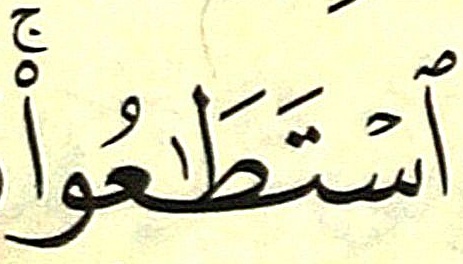 ٱسۡتَطَٰعُواْۚ